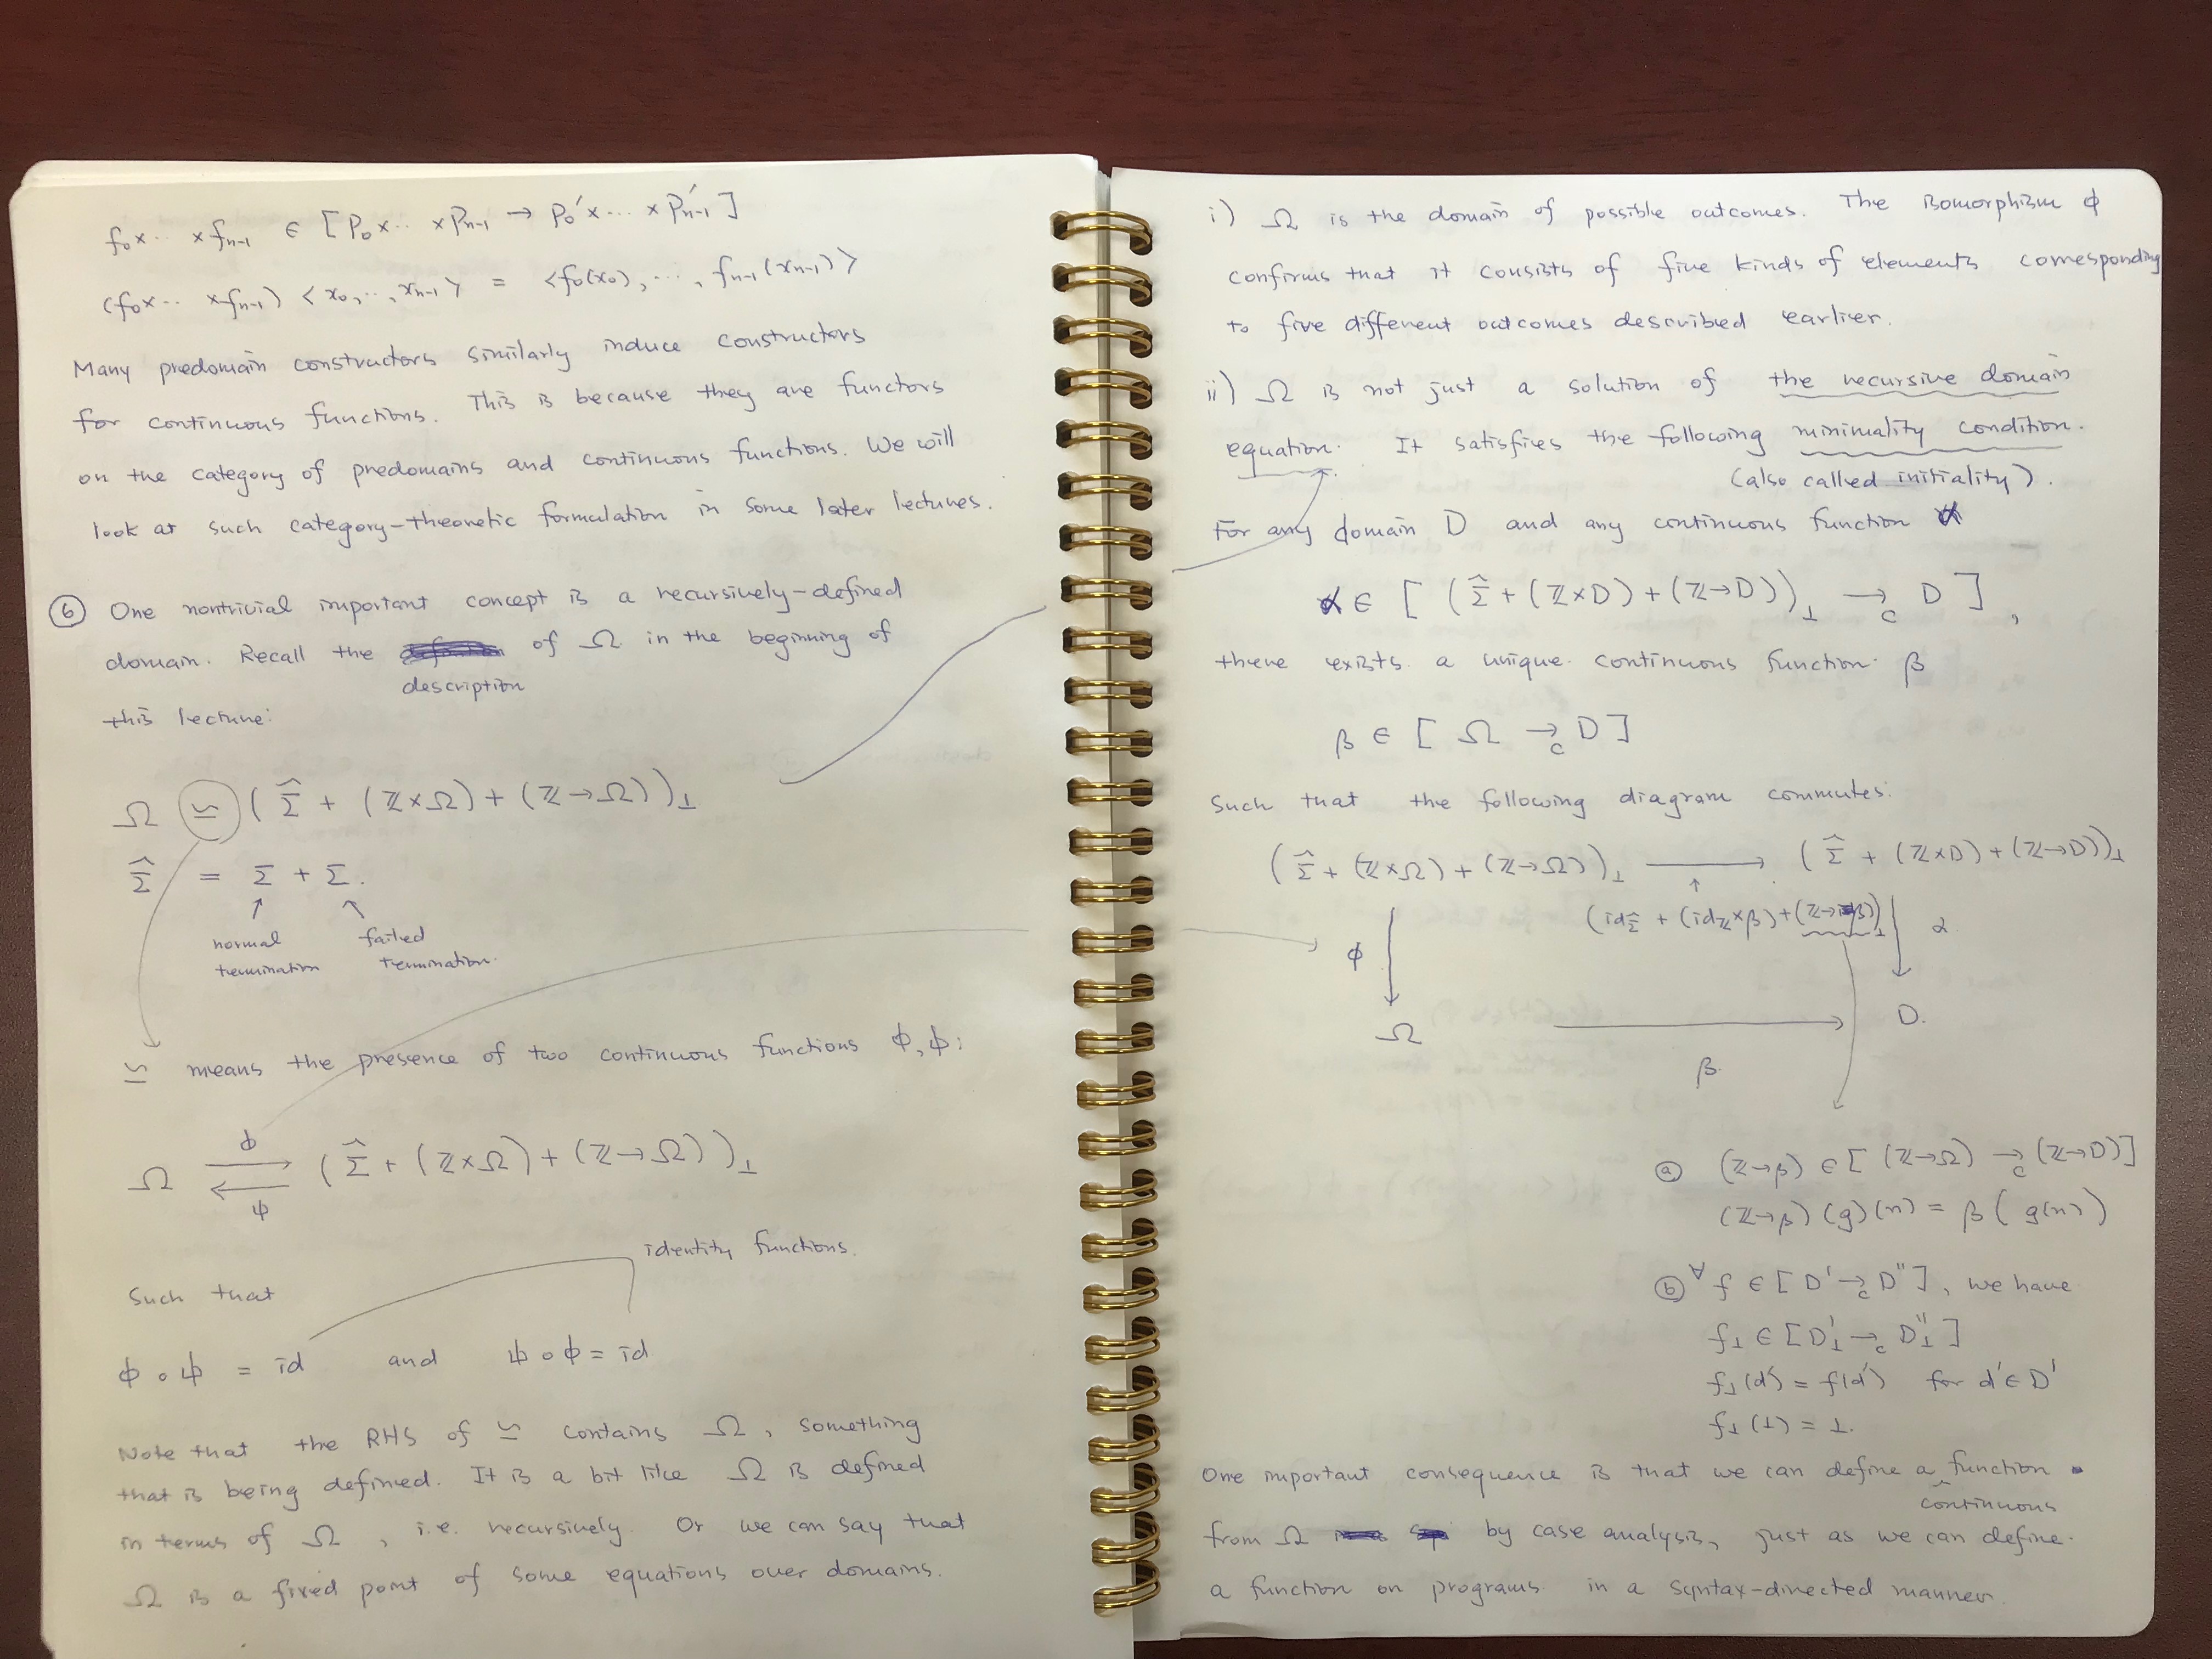 f₀×·· ×fₙ₋₁ ∈ [P₀×·· ×Pₙ₋₁ → P₀'×··· ×P'ₙ₋₁]
(f₀×·· ×fₙ₋₁) <x₀,··,xₙ₋₁> = <f₀(x₀), ···, fₙ₋₁(xₙ₋₁)>
Many predomain constructors similarly induce constructors
for continuous functions. This is because they are functors
on the category of predomains and continuous functions. We will
look at such category-theoretic formulation in some later lectures.
⑥ One nontrivial important concept is a recursively-defined
domain. Recall the of Ω in the beginning of
description
this lecture:
Ω ≃ (Σ̂ + (ℤ×Ω) + (ℤ→Ω))⊥
Σ̂ = Σ + Σ.
↑ ↖
normal failed
termination termination.
≃ means the presence of two continuous functions ϕ, ψ:
ϕ
Ω ⇄ (Σ̂ + (ℤ×Ω) + (ℤ→Ω))⊥
ψ
identity functions.
Such that
ϕ∘ψ = id and ψ∘ϕ = id
Note that the RHS of ≃ contains Ω, something
that is being defined. It is a bit like Ω is defined
in terms of Ω, i.e. recursively. Or we can say that
Ω is a fixed point of some equations over domains.
i) Ω is the domain of possible outcomes. The isomorphism ϕ
confirms that it consists of five kinds of elements corresponding
to five different outcomes described earlier.
ii) Ω is not just a solution of the recursive domain
equation. It satisfies the following minimality condition.
(also called initiality).
For any domain D and any continuous function
α ∈ [(Σ̂ + (ℤ×D) + (ℤ→D))⊥ →c D],
there exists a unique continuous function β
β ∈ [Ω →c D]
Such that the following diagram commutes:
(Σ̂ + (ℤ×Ω) + (ℤ→Ω))⊥ → (Σ̂ + (ℤ×D) + (ℤ→D))⊥
↑
(id_Σ̂ + (id_ℤ×β) + (ℤ→β))⊥
ϕ ↓ ↓ α
Ω → D.
β.
ⓐ (ℤ→β) ∈ [(ℤ→Ω) →c (ℤ→D)]
(ℤ→β)(g)(n) = β(g(n))
ⓑ ∀f ∈ [D' →c D''], we have
f⊥ ∈ [D'⊥ →c D''⊥]
f⊥(d') = f(d') for d' ∈ D'
f⊥(⊥) = ⊥.
One important consequence is that we can define a function
continuous
from Ω by case analysis, just as we can define
a function on programs in a syntax-directed manner.